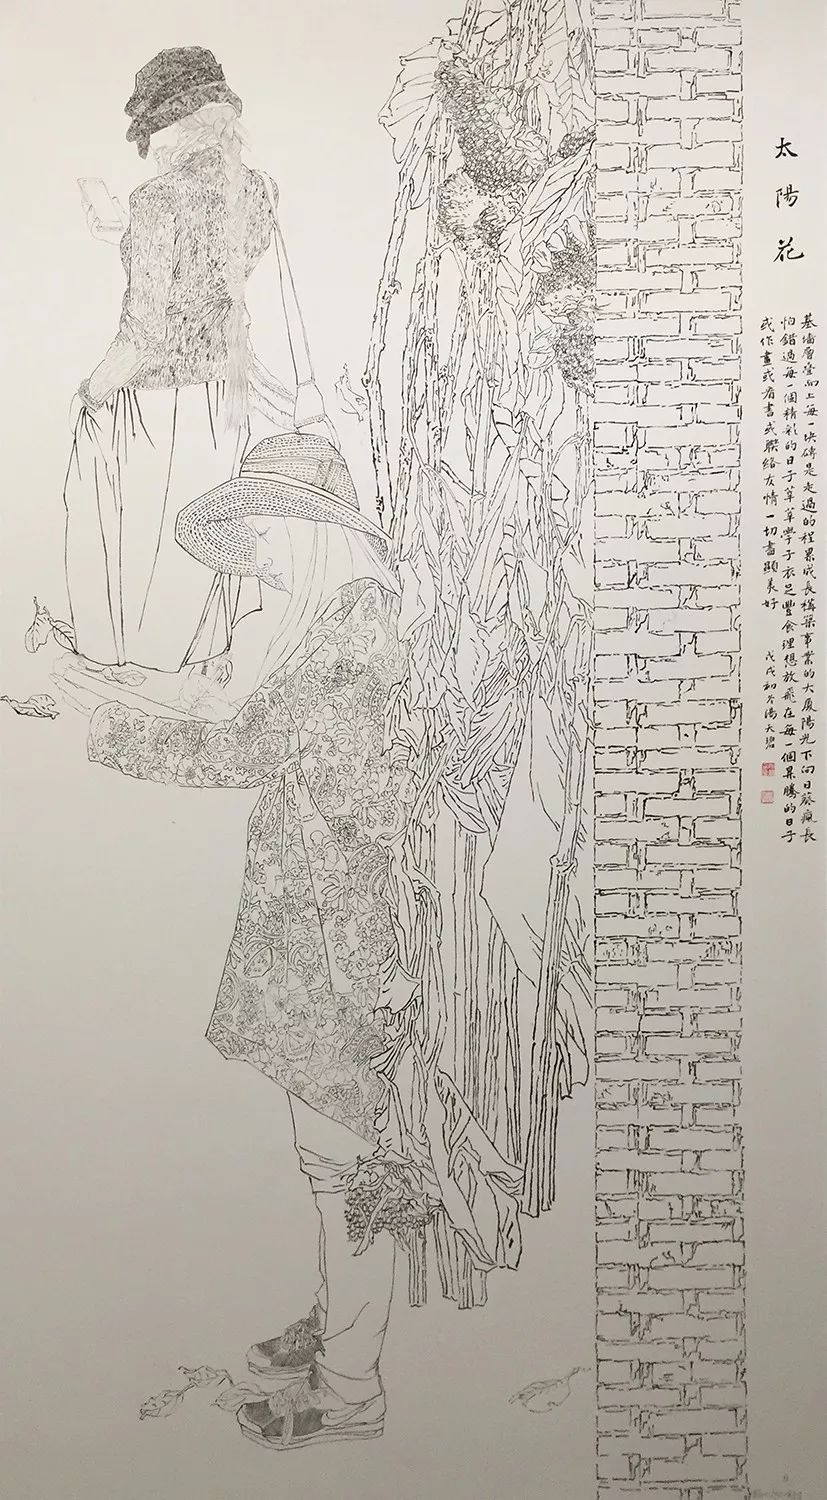 太陽花
基墻層叠向上每一块磚是走過的程累成長構築事業的大廈陽光下向日葵瘋長
怕錯過每一個精彩的日子莘莘學子衣足豐食理想放飛在每一個昇騰的日子
或作畫或看書或聯絡友情一切盡顯美好
戊戌初冬湯天碧